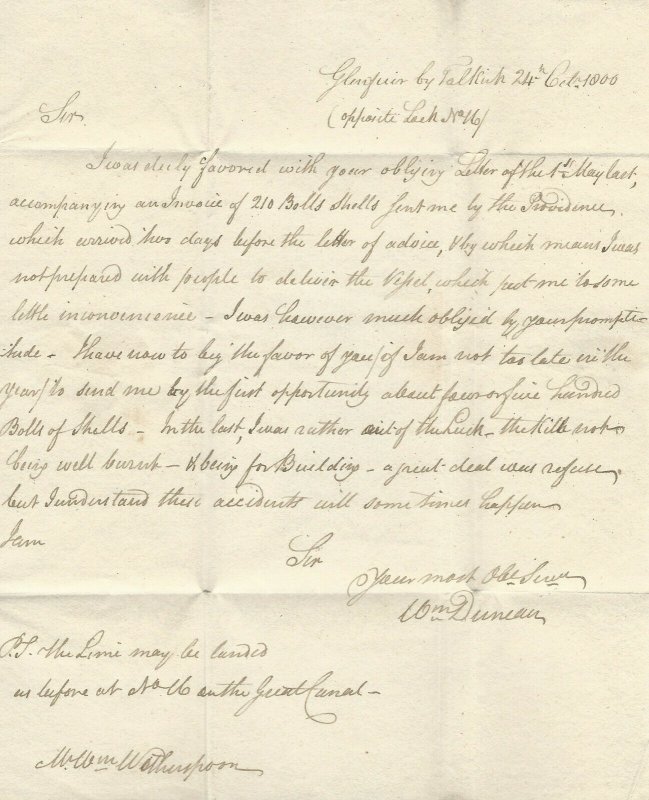 Glenfuir by Falkirk 24th Octr. 1800
(opposite Lock No 16)
Sir
I was duly favored with your obliging Letter of the 1st May last,
accompanying an Invoice of 210 Bolls Shells sent me by the Providence
which arrived two days before the letter of advice, & by which means I was
not prepared with people to deliver the Vessel, which put me to some
little inconvenience – I was however much obliged by your prompti-
tude – I have now to beg the favor of you (if I am not too late in the
year) to send me by the first opportunity about four or five hundred
Bolls of Shells – In the last, I was rather out of the Luck – the Kiln not
being well burnt – & being for Building – a great deal was refuse,
but I understand these accidents will some times happen
I am
Sir
Your most Obt. Servt
Wm Duncan
P.S. the Lime may be landed
as before at No 16 on the Great Canal –
Mr. Wm Wotherspoon